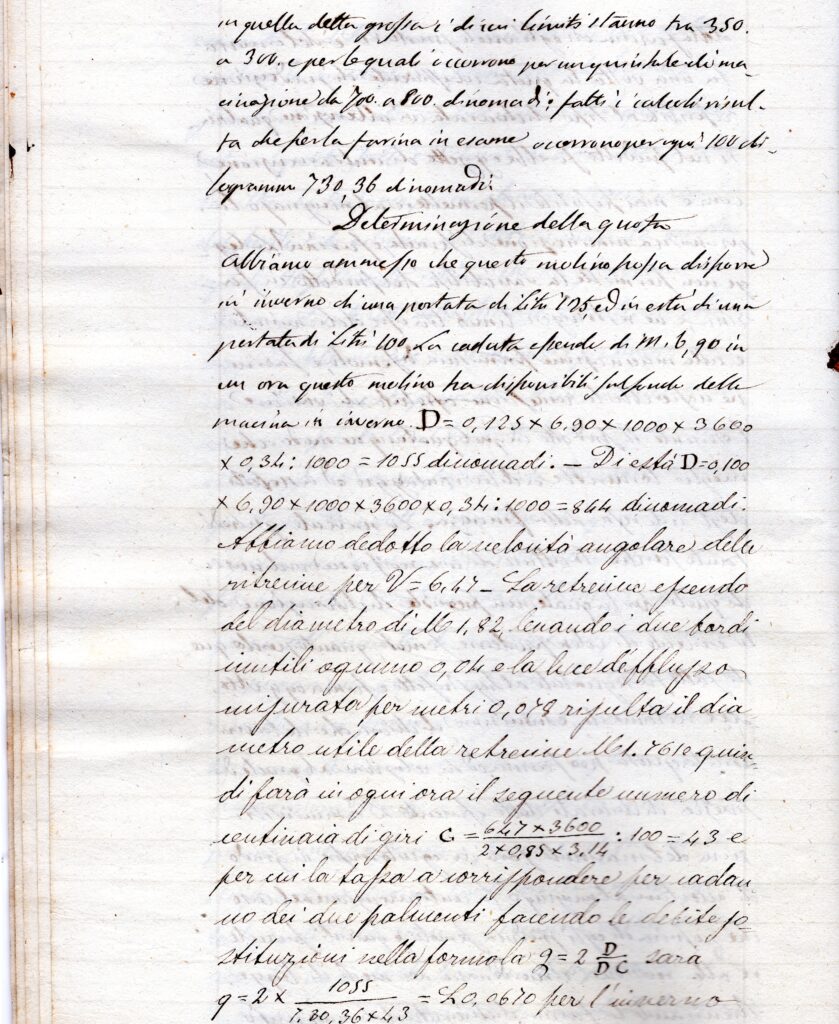 in quella detta grossa i di cui limiti stanno tra 350.
a 300. e per le quali occorrono per un quintale di ma-
cinazione da 700. a 800. dinomadi: fatti i calcoli risul-
ta che per la farina in esame occorrono per ogni 100 chi-
logrammi 730,36 dinomadi:
Determinazione della quota
Abbiamo ammesso che questo molino possa disporre
in inverno di una portata di Litri 125, ed in està di una
portata di Litri 100, La caduta essendo di M. 6,90 in
un ora questo molino ha disponibili sul fondo della
macina in inverno. D = 0,125 x 6.90 x 1000 x 3600
x 0,34 : 1000 = 1055 dinomadi. — Di està D = 0,100
x 6,90 x 1000 x 3600 x 0,34 : 1000 = 844 dinomadi.
Abbiamo dedotto la velocità angolare della
ritrecine per V = 6,47 — La retrecine essendo
del diametro di M 1,82, levando i due bordi
inutili ognuno 0,04 e la luce d'efflusso
misurata per metri 0,078 risulta il dia
metro utile della retrecine M 1.761 e quin-
di farà in ogni ora il seguente numero di
centinaia di giri G = 647 x 3600 / 2 x 0,85 x 3,14 : 100 = 43 e
per cui la tassa a corrispondere per cadau
no dei due palmenti facendo le debite so-
stituzioni nella formola q = 2 D / DC sarà
q = 2 x 1055 / 7,30,36 x 43 = L 0,0670 per l'inverno